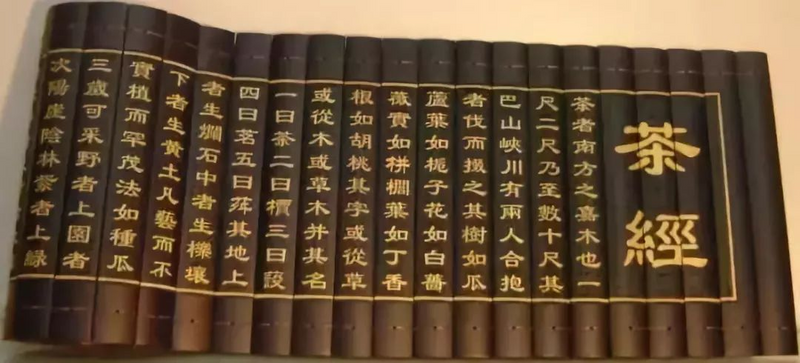 茶經
茶者南方之嘉木也一
尺二尺乃至數十尺其
巴山峽川有兩人合抱
者伐而掇之其樹如瓜
蘆葉如梔子花如白薔
薇實如栟櫚葉如丁香
根如胡桃其字或從草
或從木或草木并其名
一曰茶二曰檟三曰設
四曰茗五曰荈其地上
者生爛石中者生櫟壤
下者生黄土凡藝而不
實植而罕茂法如種瓜
三歲可采野者上園者
次陽崖陰林紫者上綠